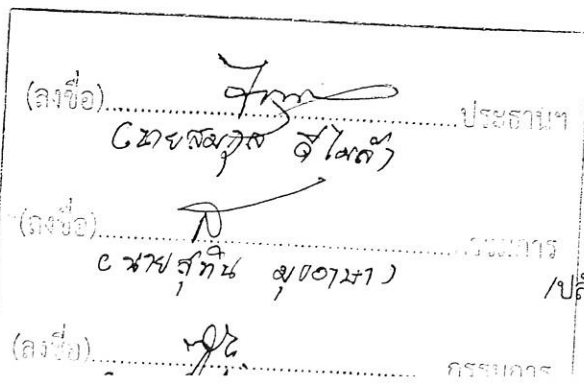 (ลงชื่อ)..............................ประธานฯ
(นายสมกุล ดีไม่ล้ำ)
(ลงชื่อ)..............................กรรมการ
(นายสุทิน มุงอาษา)
/ปลั
(ลงชื่อ)..............................กรรมการ